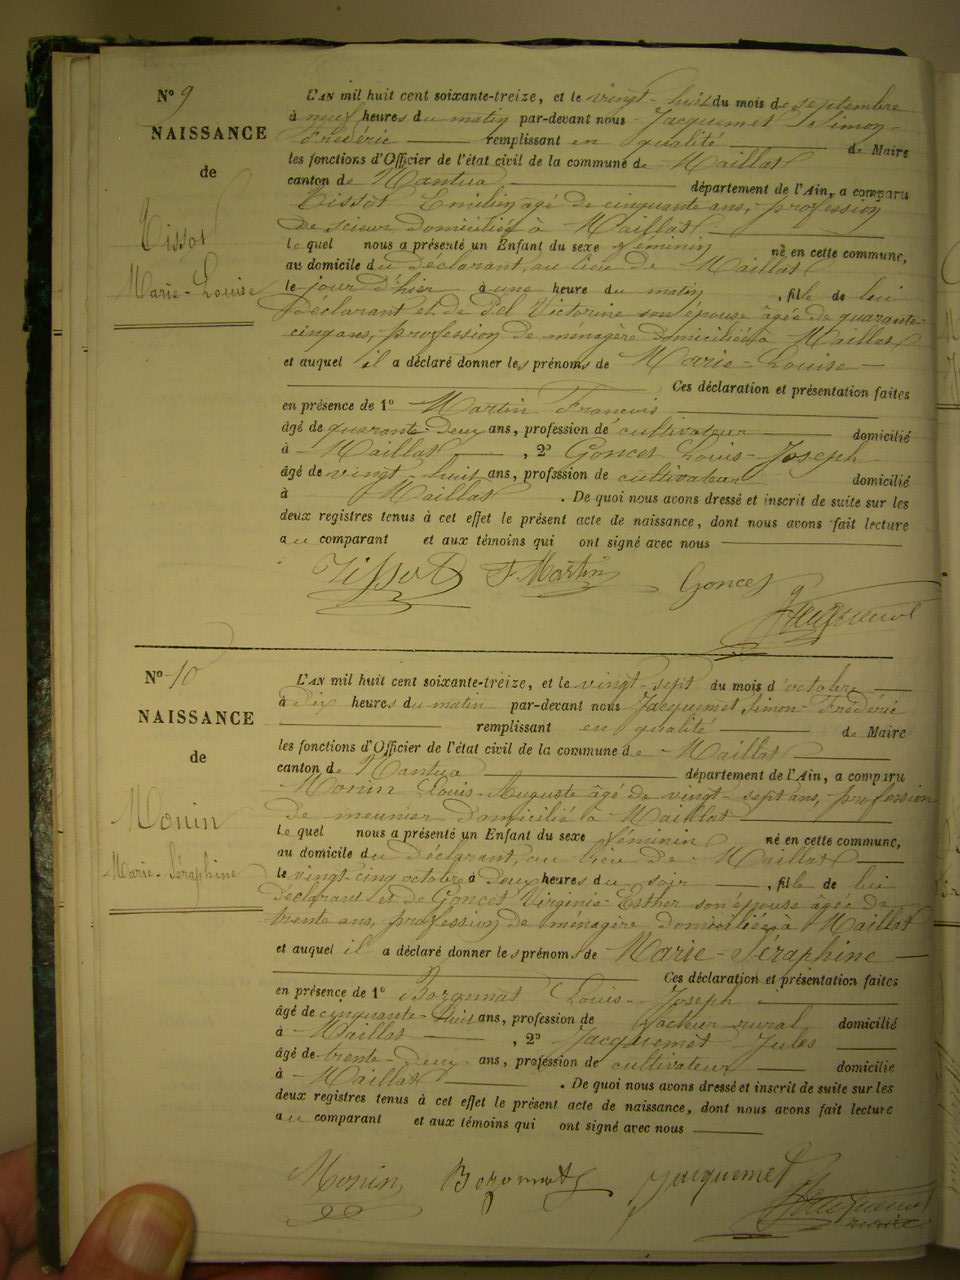 N° 9
NAISSANCE
de
Tissot
Marie-Louise
L'AN mil huit cent soixante-treize, et le vingt-huit du mois de septembre
à neuf heures du matin par-devant nous Jacquemet Simon-
Frédéric remplissant en qualité de Maire
les fonctions d'Officier de l'état civil de la commune de Maillat
canton de Nantua département de l'Ain, a comparu
Tissot Emilien âgé de cinquante ans, profession
de scieur domicilié à Maillat
lequel nous a présenté un Enfant du sexe féminin né en cette commune,
au domicile du déclarant, au lieu de Maillat
le jour d'hier à une heure du matin, fille de lui
déclarant et de Victorine son épouse âgée de quarante-
cinq ans, profession de ménagère domiciliée à Maillat
et auquel il a déclaré donner les prénoms de Marie-Louise
Ces déclaration et présentation faites
en présence de 1° Martin François
âgé de quarante-deux ans, profession de cultivateur domicilié
à Maillat, 2° Goncet Louis-Joseph
âgé de vingt-huit ans, profession de cultivateur domicilié
à Maillat. De quoi nous avons dressé et inscrit de suite sur les
deux registres tenus à cet effet le présent acte de naissance, dont nous avons fait lecture
au comparant et aux témoins qui ont signé avec nous
Tissot F. Martin Goncet
Jacquemet
N° 10
NAISSANCE
de
Monin
Marie-Séraphine
L'AN mil huit cent soixante-treize, et le vingt-sept du mois d'octobre
à dix heures du matin par-devant nous Jacquemet Simon-Frédéric
remplissant en qualité de Maire
les fonctions d'Officier de l'état civil de la commune de Maillat
canton de Nantua département de l'Ain, a comparu
Monin Louis-Auguste âgé de vingt-sept ans, profession
de meunier domicilié à Maillat
lequel nous a présenté un Enfant du sexe féminin né en cette commune,
au domicile du déclarant, au lieu de Maillat
le vingt-cinq octobre à deux heures du soir, fille de lui
déclarant et de Goncet Virginie-Esther son épouse âgée de
trente ans, profession de ménagère domiciliée à Maillat
et auquel il a déclaré donner les prénoms de Marie-Séraphine
Ces déclaration et présentation faites
en présence de 1° Bozonnat Louis-Joseph
âgé de cinquante-huit ans, profession de facteur rural domicilié
à Maillat, 2° Jacquemet Jules
âgé de trente-deux ans, profession de cultivateur domicilié
à Maillat. De quoi nous avons dressé et inscrit de suite sur les
deux registres tenus à cet effet le présent acte de naissance, dont nous avons fait lecture
au comparant et aux témoins qui ont signé avec nous
Monin Bozonnat Jacquemet
Jacquemet